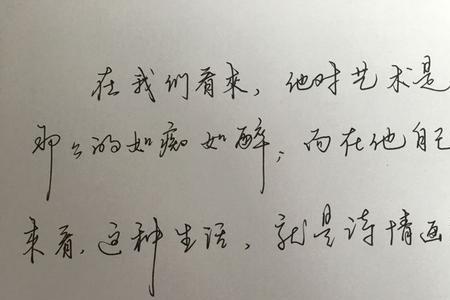 在我们看来，他对艺术是
那么的如痴如醉；而在他自己
来看，这种生活，就是诗情画